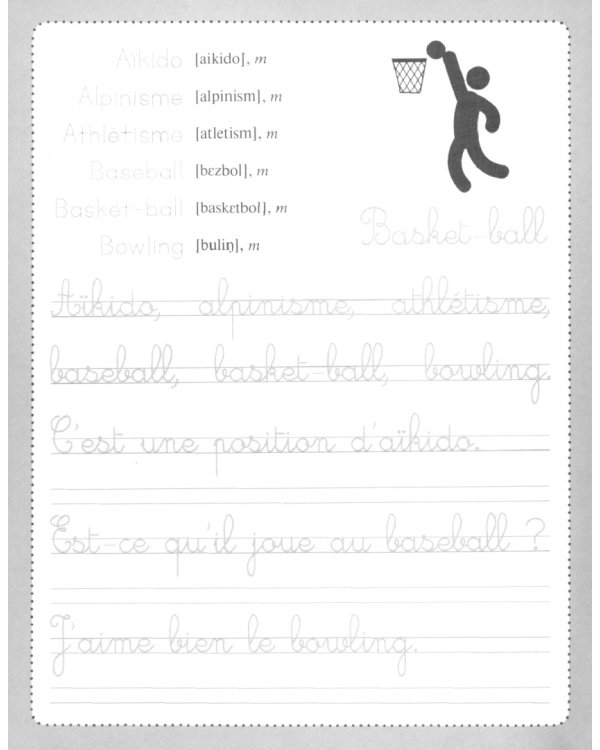 Aïkido [aikido], m
Alpinisme [alpinism], m
Athlétisme [atletism], m
Baseball [bɛzbol], m
Basket-ball [baskɛtboł], m
Bowling [buliŋ], m
Basket-ball
Aïkido, alpinisme, athlétisme,
baseball, basket-ball, bowling.
C'est une position d'aïkido.
Est-ce qu'il joue au baseball ?
J'aime bien le bowling.